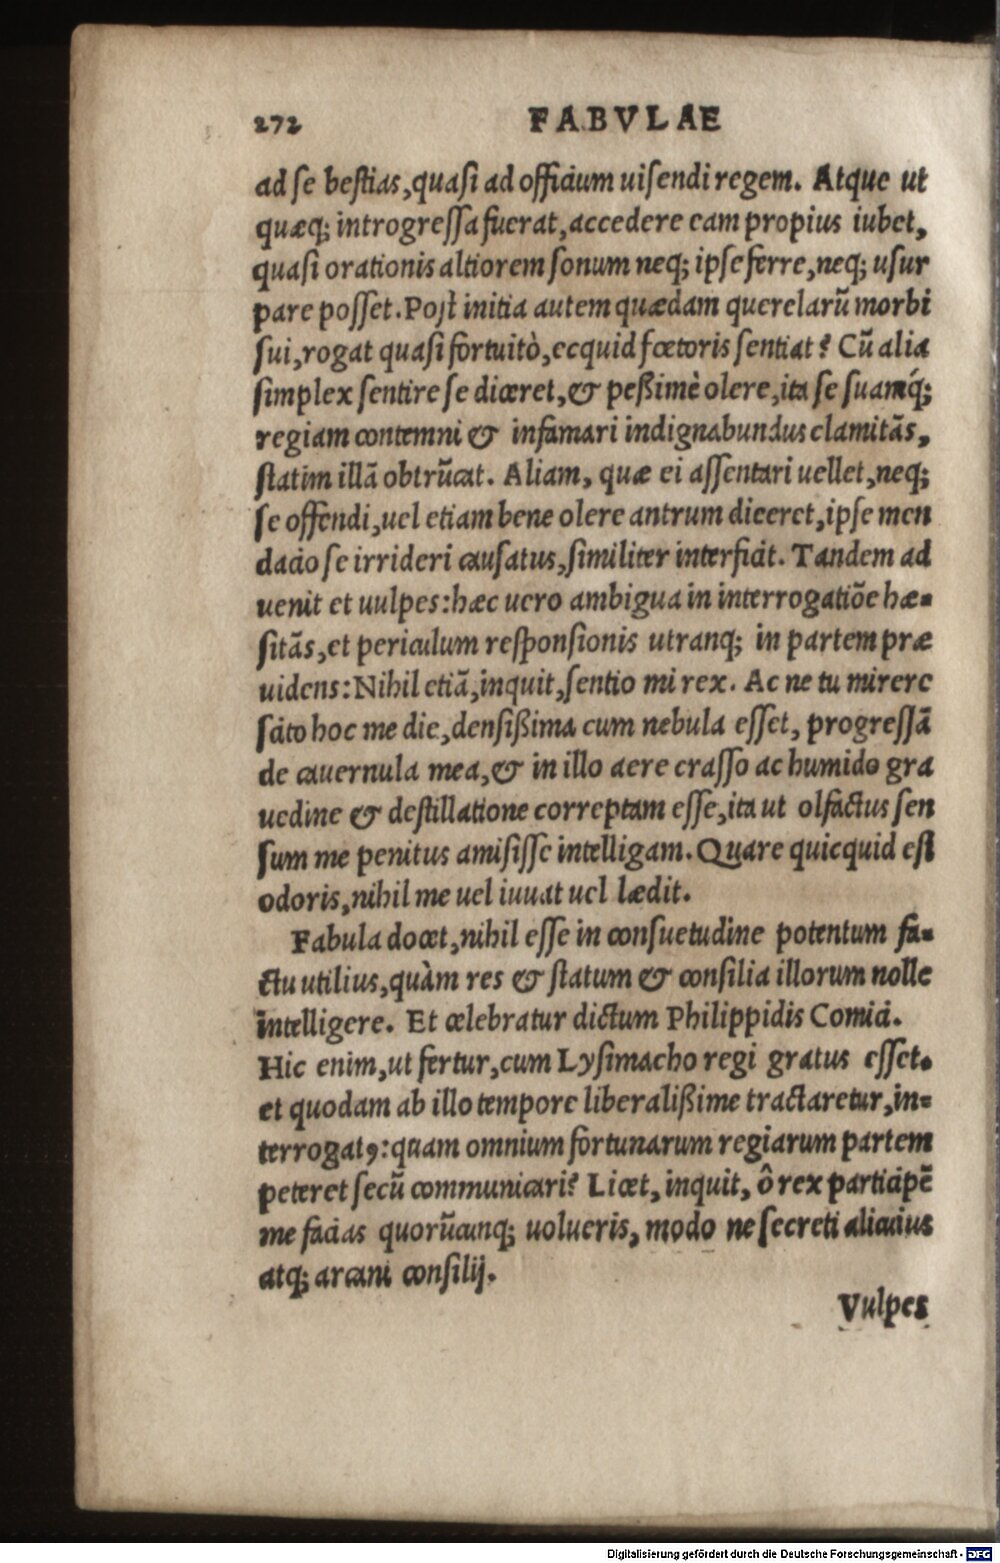 272 FABVLAE
ad se bestias, quasi ad officium uisendi regem. Atque ut
quæq; introgressa fuerat, accedere eam propius iubet,
quasi orationis altiorem sonum neq; ipse ferre, neq; usur
pare posset. Post initia autem quædam querelarũ morbi
sui, rogat quasi fortuitò, ecquid fœtoris sentiat? Cũ alia
simplex sentire se diceret, & peßimè olere, ita se suamq́;
regiam contemni & infamari indignabundus clamitãs,
statim illã obtrũcat. Aliam, quæ ei assentari uellet, neq;
se offendi, uel etiam bene olere antrum diceret, ipse men
dacio se irrideri causatus, similiter interficit. Tandem ad
uenit et uulpes: hæc uero ambigua in interrogatiõe hæ-
sitãs, et periculum responsionis utranq; in partem præ
uidens: Nihil etiã, inquit, sentio mi rex. Ac ne tu mirere
scito hoc me die, densißima cum nebula esset, progressã
de cauernula mea, & in illo aere crasso ac humido gra
uedine & destillatione correptam esse, ita ut olfactus sen
sum me penitus amisisse intelligam. Quare quicquid est
odoris, nihil me uel iuuat uel lædit.
Fabula docet, nihil esse in consuetudine potentum fa-
ctu utilius, quàm res & statum & consilia illorum nolle
intelligere. Et celebratur dictum Philippidis Comici.
Hic enim, ut fertur, cum Lysimacho regi gratus esset.
et quodam ab illo tempore liberalißime tractaretur, in-
terrogatꝰ: quam omnium fortunarum regiarum partem
peteret secũ communicari? Licet, inquit, ô rex participẽ
me facias quorũcunq; uolueris, modo ne secreti alicuius
atq; arcani consilij.
Vulpes
Digitalisierung gefördert durch die Deutsche Forschungsgemeinschaft - DFG